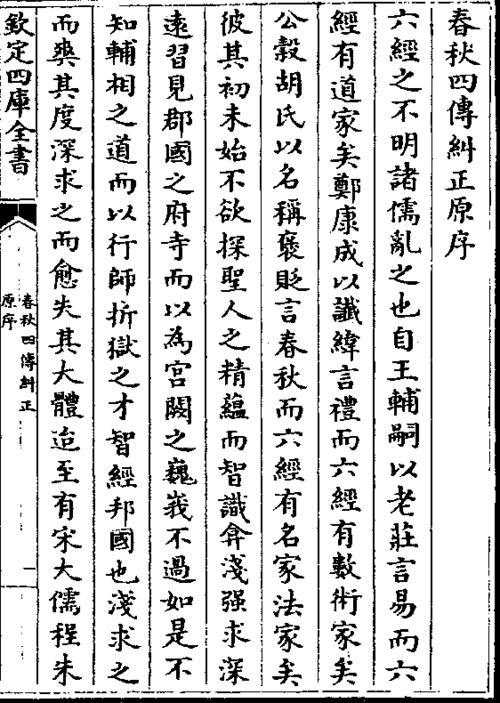 春秋四傳糾正原序
六經之不明諸儒亂之也自王輔嗣以老莊言易而六
經有道家矣鄭康成以讖緯言禮而六經有數術家矣
公穀胡氏以名稱褒貶言春秋而六經有名家法家矣
彼其初未始不欲探聖人之精蘊而智識弇淺强求深
遠習見郡國之府寺而以為宮闕之巍峩不過如是不
知輔相之道而以行師折獄之才智經邦國也淺求之
而爽其度深求之而愈失其大體迨至有宋大儒程朱
欽定四庫全書
春秋四傳糾正
原序
一